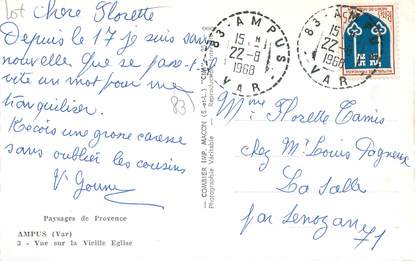 Lot Chère Florette
Depuis le 17 je suis sans
nouvelle que se passe-t-il
vite un mot pour me
tranquiliser.
83)
Reçois une grosse caresse
sans oublier les cousins
Paysages de Provence
AMPUS (Var)
3 - Vue sur la Vieille Eglise
COMBIER IMP. MACON (S.-et-L.) "CIM"
Photographie Véritable - Reproduction
83 AMPUS
15 H
22-8
1968
VAR
83 AMPUS
15
22-8
1968
VAR
Mme Florette Tamis
chez Mr Louis Pagneux
La Salle
par Senozan 71